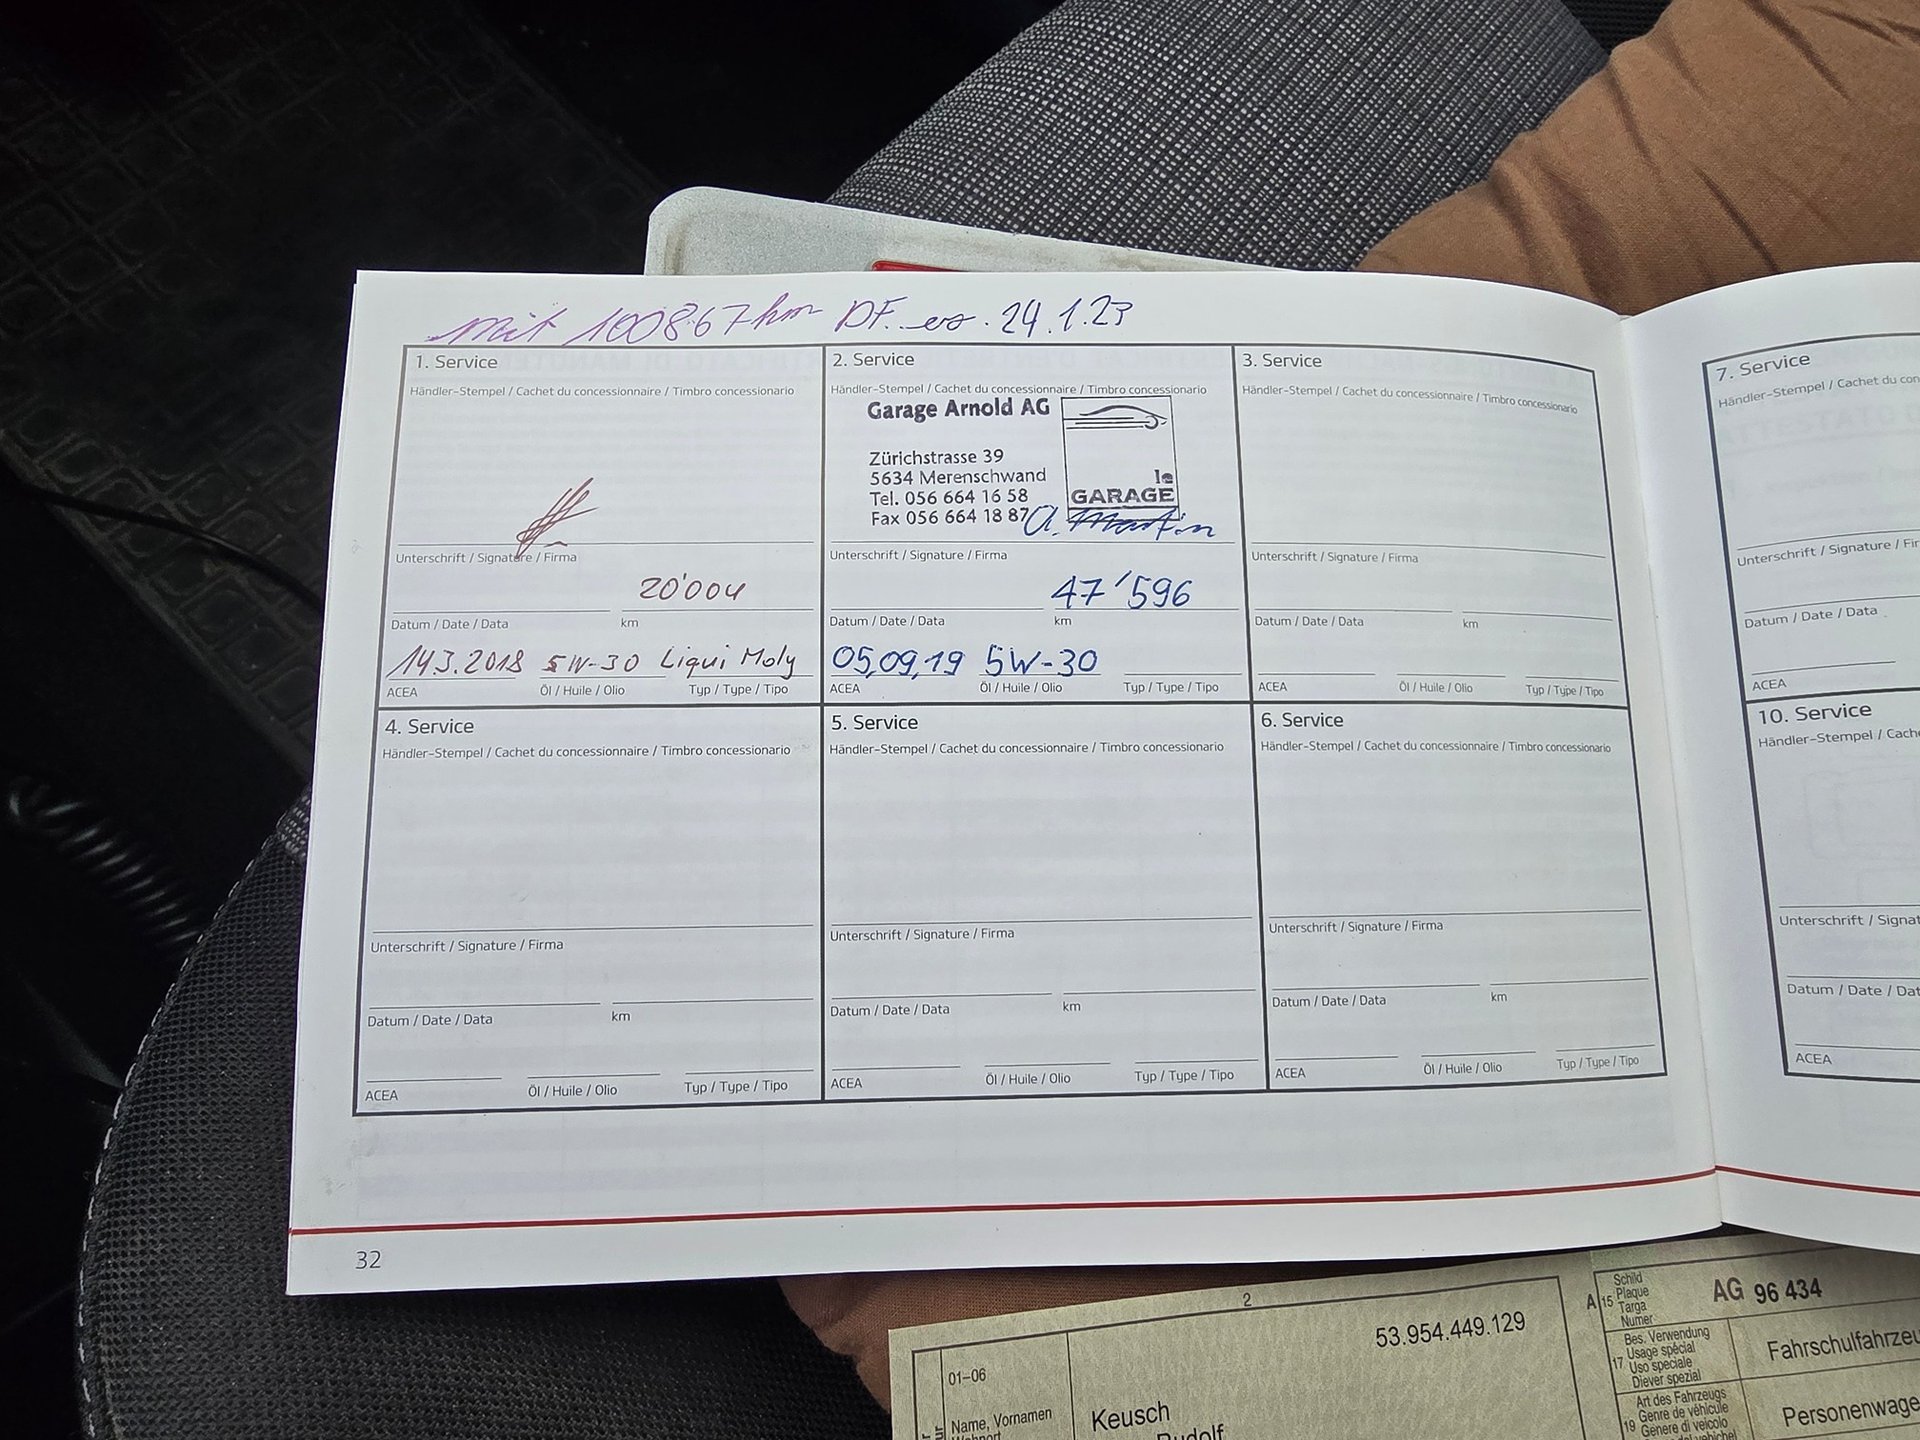 mit 100867 km DF. es. 24.1.23
1. Service
Händler-Stempel / Cachet du concessionnaire / Timbro concessionario
Unterschrift / Signature / Firma
20'004
Datum / Date / Data
km
14.3.2018 5W-30 Liqui Moly
ACEA
Öl / Huile / Olio
Typ / Type / Tipo
2. Service
Händler-Stempel / Cachet du concessionnaire / Timbro concessionario
Garage Arnold AG
Zürichstrasse 39
5634 Merenschwand
Tel. 056 664 16 58
Fax 056 664 18 87
le
GARAGE
Unterschrift / Signature / Firma
47'596
Datum / Date / Data
km
05,09,19 5W-30
ACEA
Öl / Huile / Olio
Typ / Type / Tipo
3. Service
Händler-Stempel / Cachet du concessionnaire / Timbro concessionario
Unterschrift / Signature / Firma
Datum / Date / Data
km
ACEA
Öl / Huile / Olio
Typ / Type / Tipo
4. Service
Händler-Stempel / Cachet du concessionnaire / Timbro concessionario
Unterschrift / Signature / Firma
Datum / Date / Data
km
ACEA
Öl / Huile / Olio
Typ / Type / Tipo
5. Service
Händler-Stempel / Cachet du concessionnaire / Timbro concessionario
Unterschrift / Signature / Firma
Datum / Date / Data
km
ACEA
Öl / Huile / Olio
Typ / Type / Tipo
6. Service
Händler-Stempel / Cachet du concessionnaire / Timbro concessionario
Unterschrift / Signature / Firma
Datum / Date / Data
km
ACEA
Öl / Huile / Olio
Typ / Type / Tipo
32
7. Service
Händler-Stempel / Cachet du con
Unterschrift / Signature / Fir
Datum / Date / Data
ACEA
10. Service
Händler-Stempel / Cach
Unterschrift / Signat
Datum / Date / Dat
ACEA
2
53.954.449.129
01-06
Name, Vornamen
Keusch
Rudolf
A
15
Schild
Plaque
Targa
Numer
AG 96 434
17
Bes. Verwendung
Usage spécial
Uso speciale
Diever spezial
Fahrschulfahrzeu
19
Art des Fahrzeugs
Genre de véhicule
Genere di veicolo
Personenwage